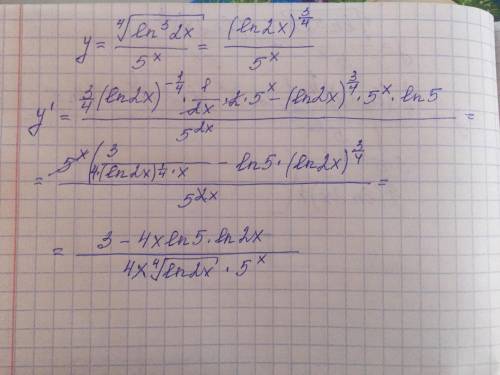 y = ⁴√(ln³2x) / 5^x = (ln2x)^(3/4) / 5^x
y' = (3/4 (ln2x)^(-1/4) · 1/(2x) · 2 · 5^x − (ln2x)^(3/4) · 5^x · ln5) / 5^(2x) =
= 5^x (3 / (4(ln2x)^(1/4) · x) − ln5 · (ln2x)^(3/4) / 5^(2x) =
= (3 − 4x ln5 · ln2x) / (4x ⁴√(ln2x) · 5^x)